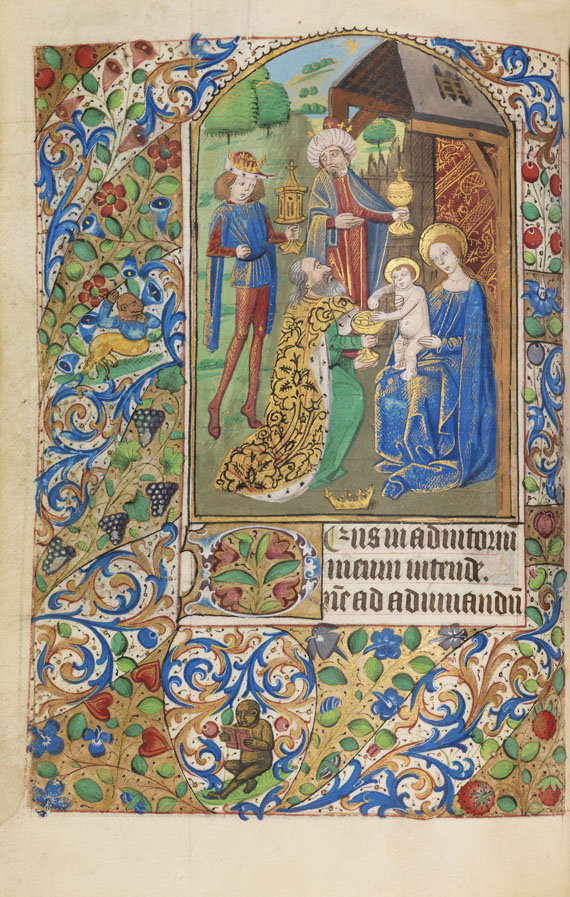 DEus in adiutoriū
meum intende.
Dñe ad adiuuandū